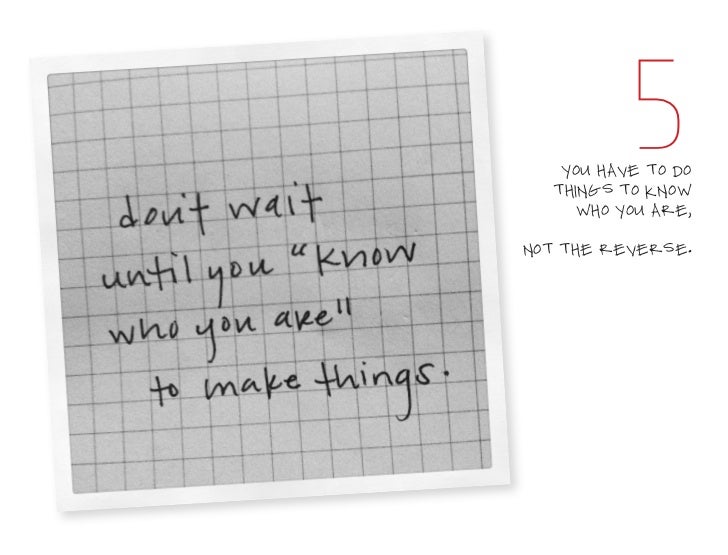 don't wait
until you "know
who you are"
to make things.
5
YOU HAVE TO DO
THINGS TO KNOW
WHO YOU ARE,
NOT THE REVERSE.